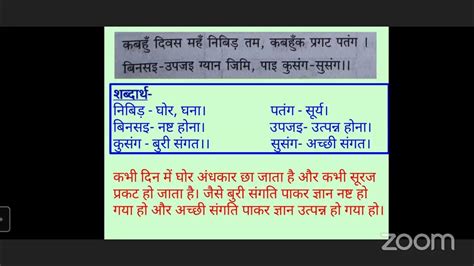 कबहुँ दिवस महँ निबिड़ तम, कबहुँक प्रगट पतंग ।
बिनसइ-उपजइ ग्यान जिमि, पाइ कुसंग-सुसंग।।
शब्दार्थ-
निबिड़ - घोर, घना। पतंग - सूर्य।
बिनसइ- नष्ट होना। उपजइ- उत्पन्न होना।
कुसंग - बुरी संगत।। सुसंग- अच्छी संगत।
कभी दिन में घोर अंधकार छा जाता है और कभी सूरज
प्रकट हो जाता है। जैसे बुरी संगति पाकर ज्ञान नष्ट हो
गया हो और अच्छी संगति पाकर ज्ञान उत्पन्न हो गया हो।
zoom